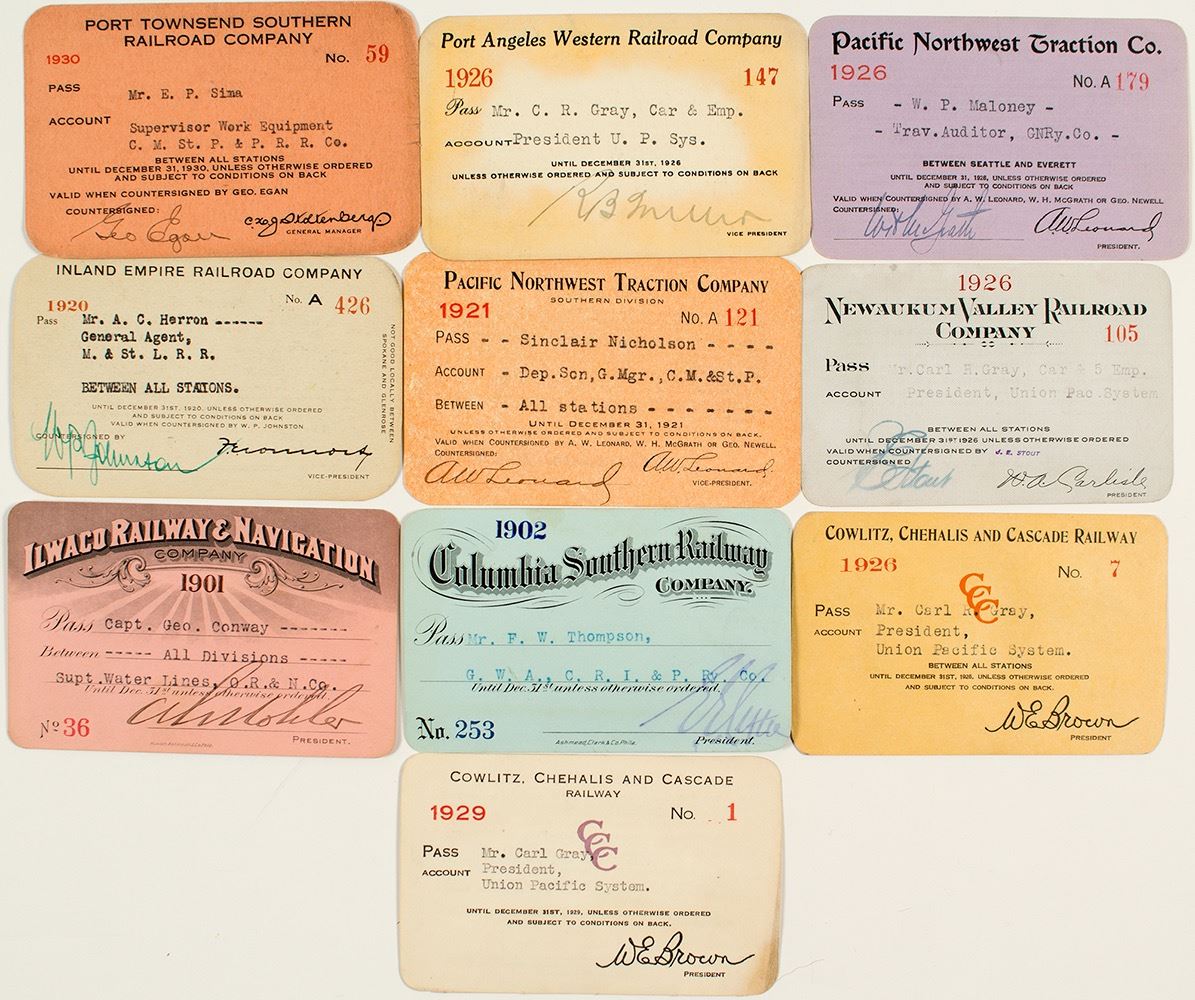 PORT TOWNSEND SOUTHERN
RAILROAD COMPANY
1930 No. 59
PASS Mr. E. P. Sima
ACCOUNT Supervisor Work Equipment
C. M. St. P. & P. R. R. Co.
BETWEEN ALL STATIONS
UNTIL DECEMBER 31, 1930, UNLESS OTHERWISE ORDERED
AND SUBJECT TO CONDITIONS ON BACK
VALID WHEN COUNTERSIGNED BY GEO. EGAN
COUNTERSIGNED:
Geo Egan
GENERAL MANAGER
Port Angeles Western Railroad Company
1926 147
Pass Mr. C. R. Gray, Car & Emp.
ACCOUNT President U. P. Sys.
UNTIL DECEMBER 31ST, 1926
UNLESS OTHERWISE ORDERED AND SUBJECT TO CONDITIONS ON BACK
VICE PRESIDENT
Pacific Northwest Traction Co.
1926 No. A 179
PASS - W. P. Maloney -
- Trav. Auditor, GNRy.Co. -
BETWEEN SEATTLE AND EVERETT
UNTIL DECEMBER 31, 1926, UNLESS OTHERWISE ORDERED
AND SUBJECT TO CONDITIONS ON BACK
VALID WHEN COUNTERSIGNED BY A. W. LEONARD, W. H. MCGRATH OR GEO. NEWELL
COUNTERSIGNED:
W H McGrath AW Leonard
PRESIDENT.
INLAND EMPIRE RAILROAD COMPANY
1920 No. A 426
Pass Mr. A. C. Herron ------
General Agent,
M. & St. L. R. R.
BETWEEN ALL STATIONS.
UNTIL DECEMBER 31ST, 1920, UNLESS OTHERWISE ORDERED
AND SUBJECT TO CONDITIONS ON BACK
VALID WHEN COUNTERSIGNED BY W. P. JOHNSTON
COUNTERSIGNED BY
VICE-PRESIDENT
NOT GOOD LOCALLY BETWEEN
SPOKANE AND GLENROSE
PACIFIC NORTHWEST TRACTION COMPANY
SOUTHERN DIVISION
1921 No. A 121
PASS - - Sinclair Nicholson - - - -
ACCOUNT - Dep.Son,G.Mgr.,C.M.&St.P.
BETWEEN - All stations - - - - - - -
UNTIL DECEMBER 31, 1921
UNLESS OTHERWISE ORDERED AND SUBJECT TO CONDITIONS ON BACK.
VALID WHEN COUNTERSIGNED BY A. W. LEONARD, W. H. MCGRATH OR GEO. NEWELL.
COUNTERSIGNED:
AW Leonard AW Leonard
VICE-PRESIDENT.
1926
NEWAUKUM VALLEY RAILROAD
COMPANY
105
Pass Mr. Carl R. Gray, Car & 5 Emp.
ACCOUNT President, Union Pac. System
BETWEEN ALL STATIONS
UNTIL DECEMBER 31ST 1926 UNLESS OTHERWISE ORDERED
AND SUBJECT TO CONDITIONS ON BACK
VALID WHEN COUNTERSIGNED BY J. E. STOUT
COUNTERSIGNED
JE Stout W. A. Carlisle
PRESIDENT
ILWACO RAILWAY & NAVIGATION
COMPANY
1901
Pass Capt. Geo. Conway -------
Between ----- All Divisions -----
Supt. Water Lines, O.R.& N.Co.
Until Dec. 31st unless otherwise ordered.
No 36
PRESIDENT.
1902
Columbia Southern Railway
COMPANY.
Pass Mr. F. W. Thompson,
G. W. A., C. R. I. & P. Ry. Co.
Until Dec. 31st unless otherwise ordered.
No. 253
Ashmead, Clark & Co. Phila. President.
COWLITZ, CHEHALIS AND CASCADE RAILWAY
1926 No. 7
CCC
PASS Mr. Carl R. Gray,
ACCOUNT President,
Union Pacific System.
BETWEEN ALL STATIONS
UNTIL DECEMBER 31ST, 1926, UNLESS OTHERWISE ORDERED
AND SUBJECT TO CONDITIONS ON BACK.
W E Brown
PRESIDENT
COWLITZ, CHEHALIS AND CASCADE
RAILWAY
1929 No. 1
CCC
PASS Mr. Carl Gray,
ACCOUNT President,
Union Pacific System.
UNTIL DECEMBER 31ST, 1929, UNLESS OTHERWISE ORDERED
AND SUBJECT TO CONDITIONS ON BACK.
W E Brown
PRESIDENT